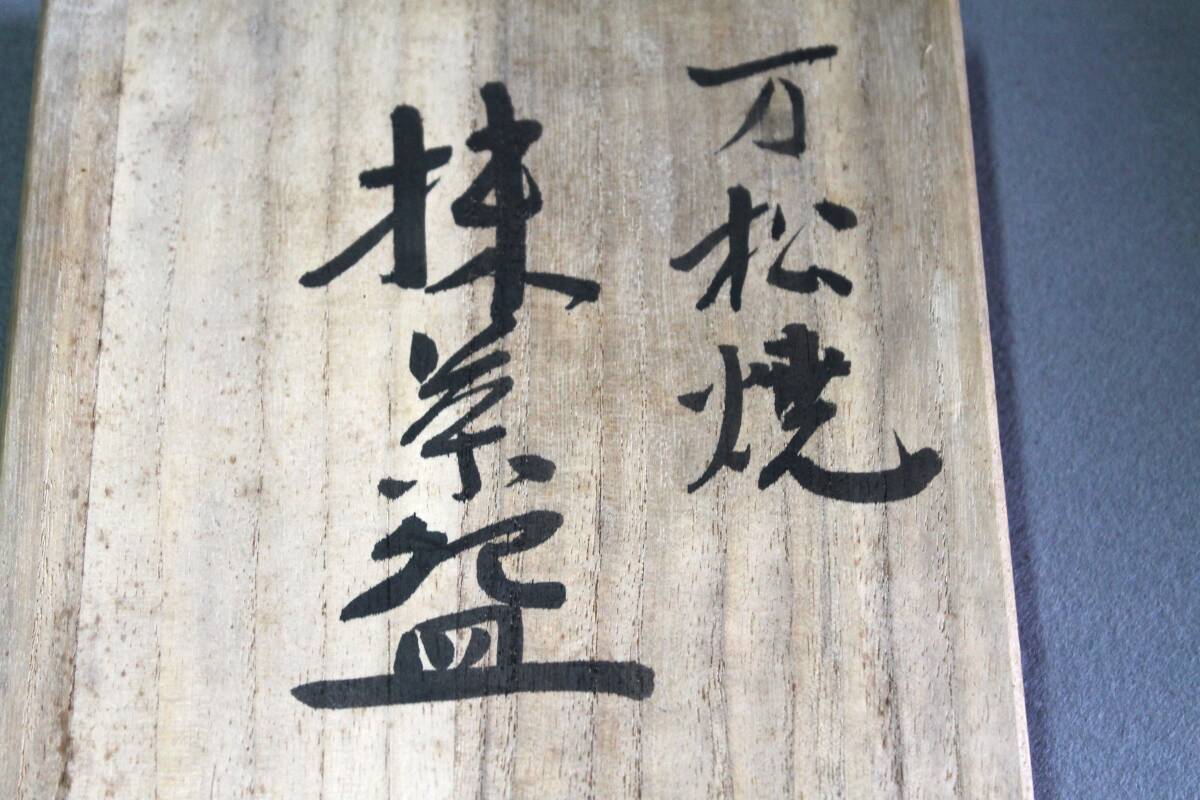 万松焼
抹茶盌